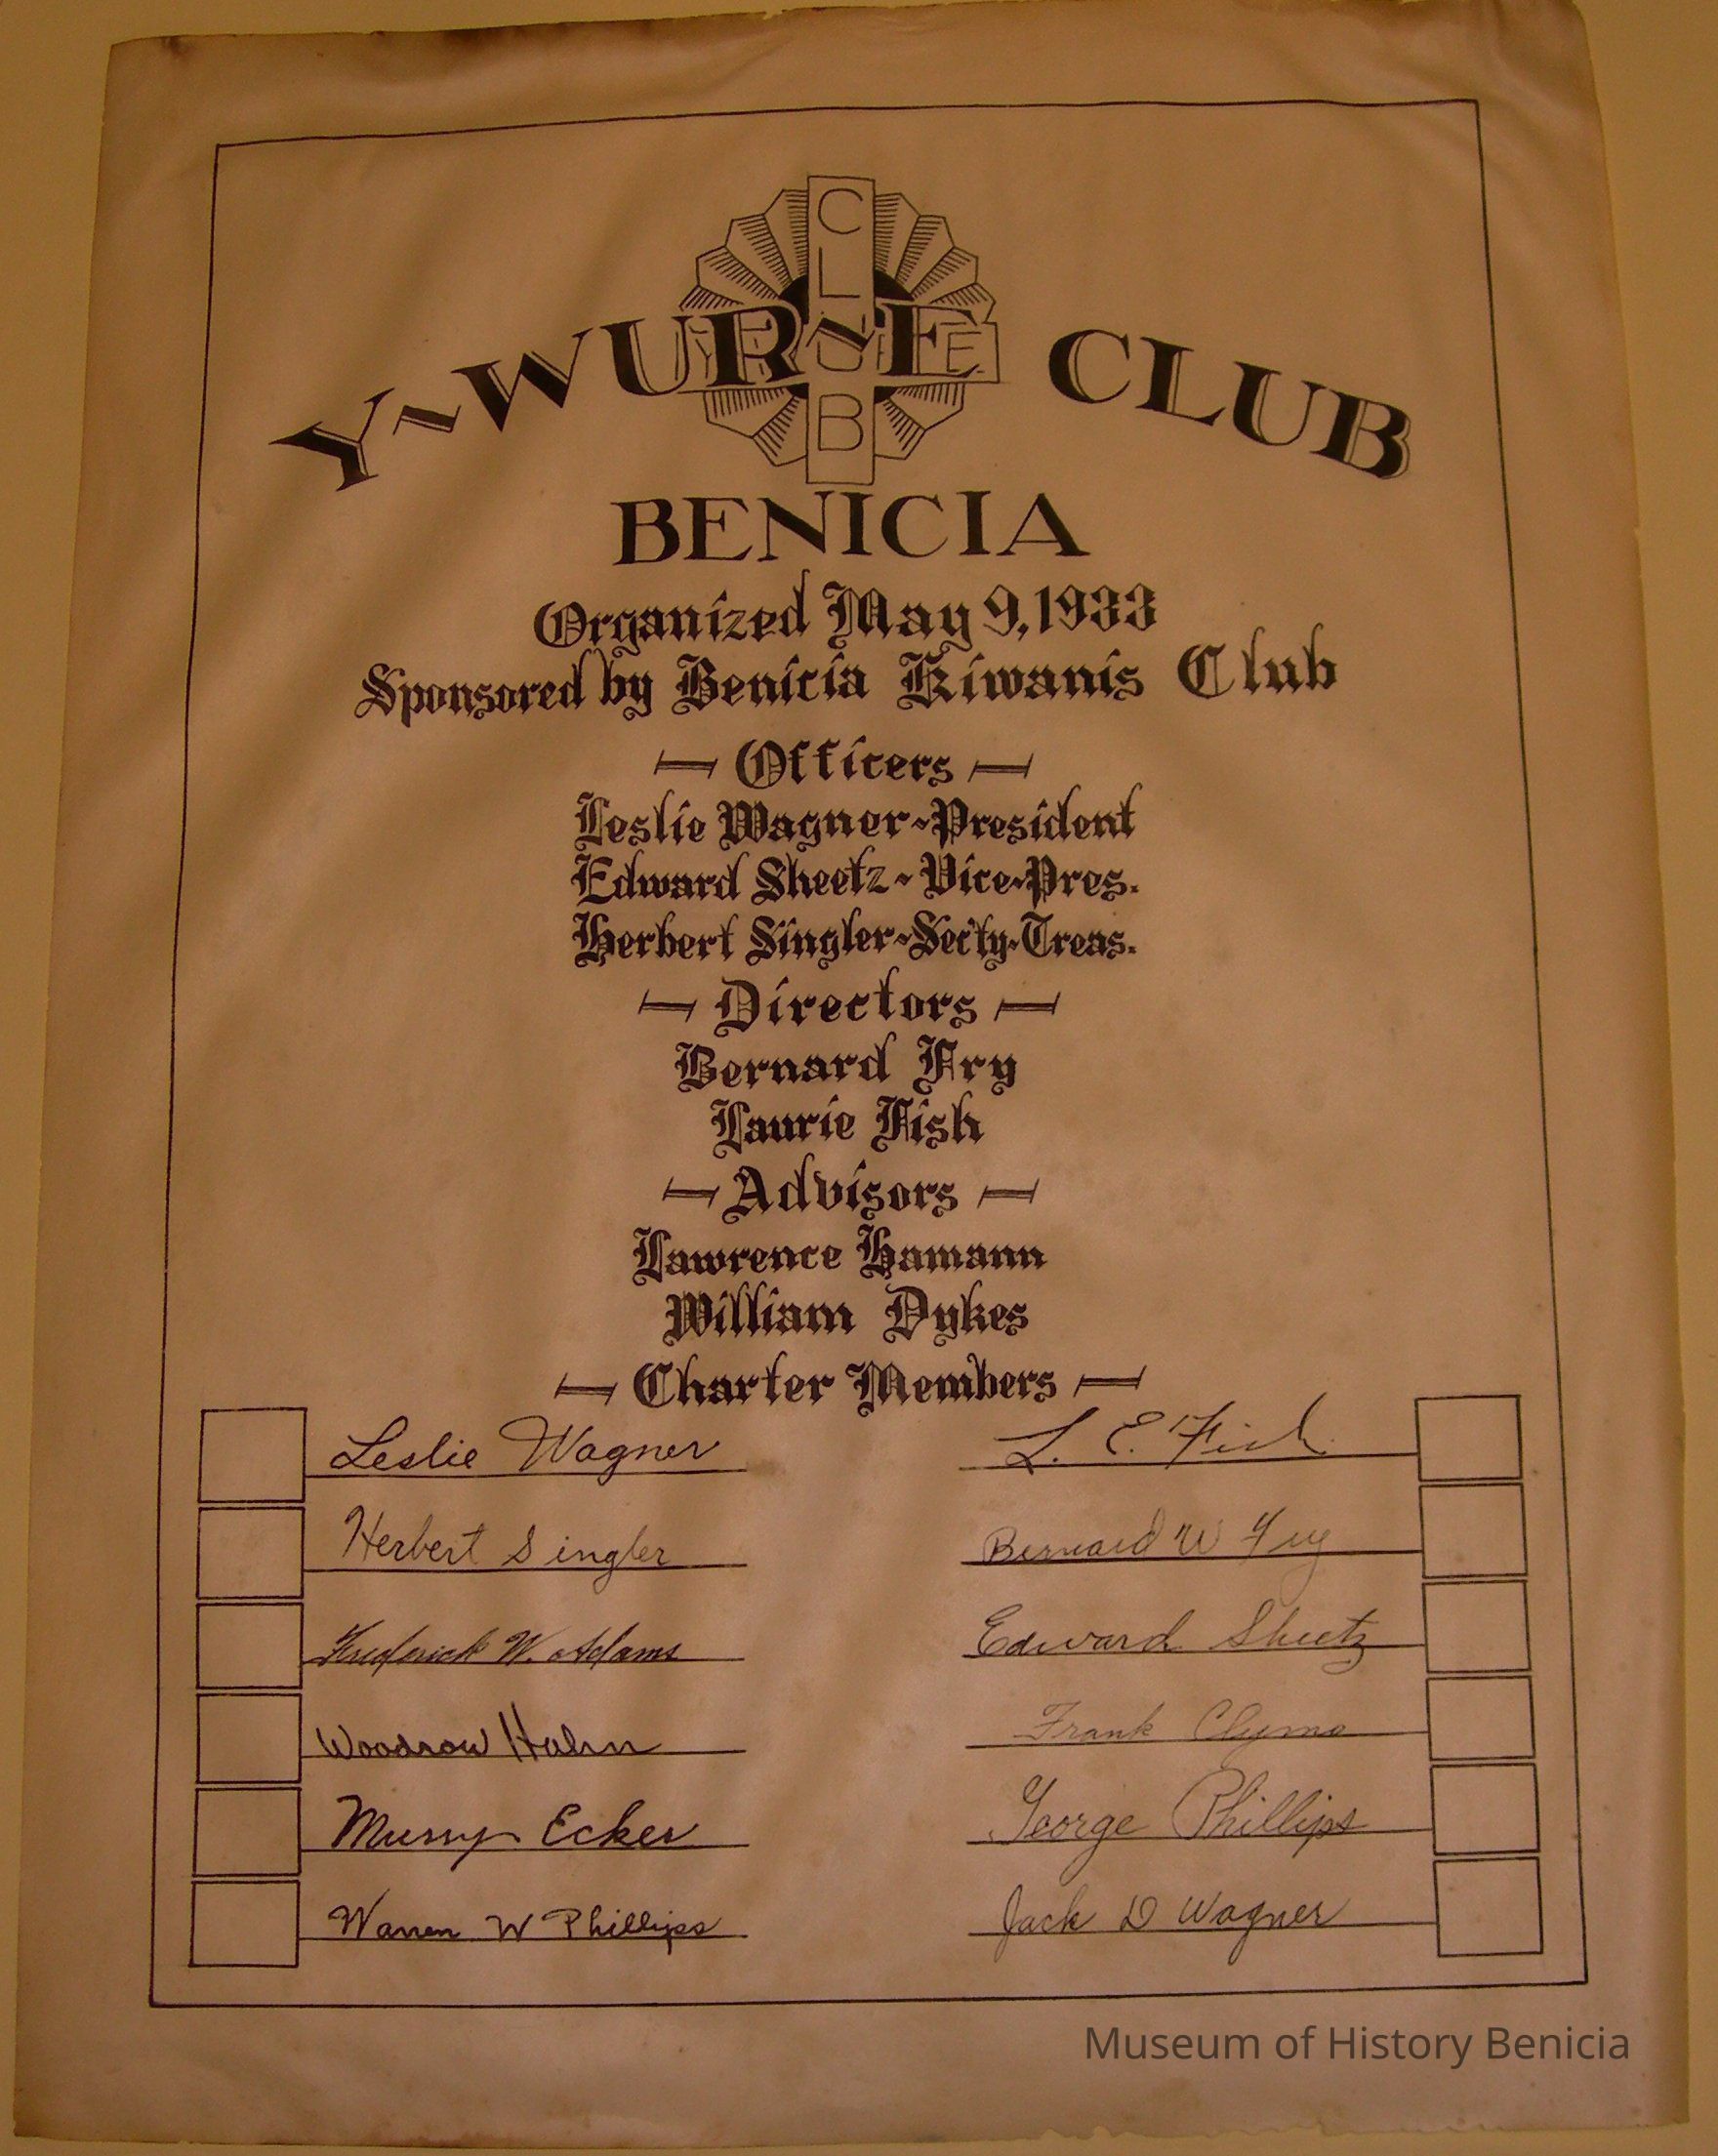 Y~WUR~E CLUB
CLUB
BENICIA
Organized May 9, 1933
Sponsored by Benicia Kiwanis Club
Officers
Leslie Wagner~President
Edward Sheetz~Vice~Pres.
Herbert Singler~Sec'ty.Treas.
Directors
Bernard Fry
Laurie Fish
Advisors
Lawrence Hamann
William Dykes
Charter Members
Leslie Wagner
L. E. Fish
Herbert Singler
Bernard W Fry
Frederick W. Adams
Edward Sheetz
Woodrow Hahn
Frank Clyma
Murry Ecker
George Phillips
Warren W Phillips
Jack D Wagner
Museum of History Benicia